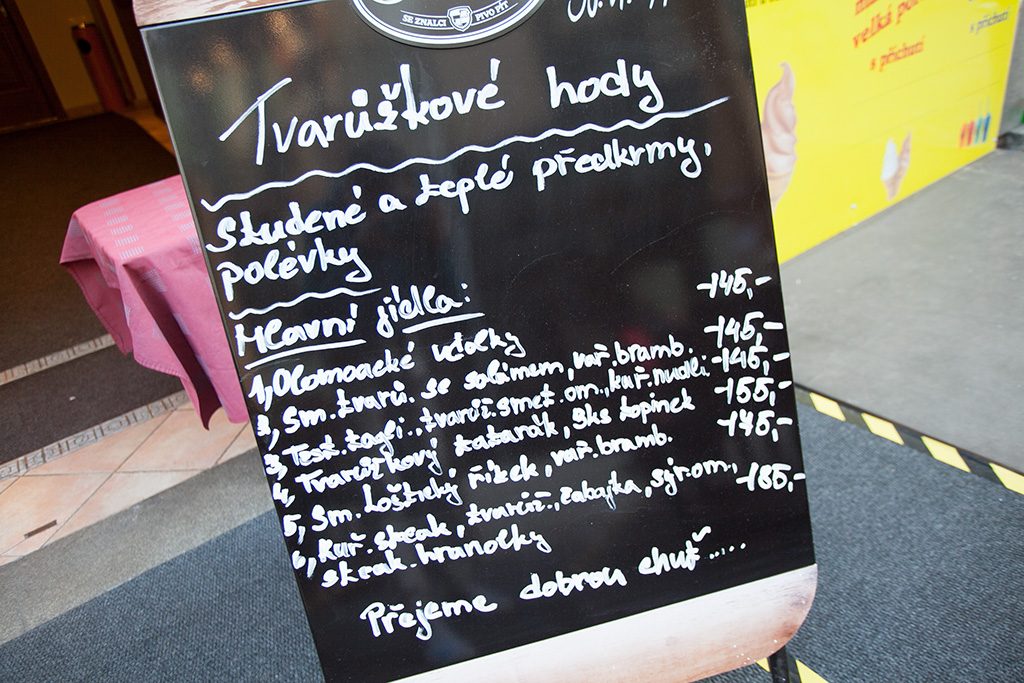 SE ZNALCI PIVO PÍT
Tvarůžkové hody
Studené a teplé předkrmy,
polévky
Hlavní jídla:
1, Olomoucké vdolky -145,-
2, Sm. tvarů. se salámem, vař. bramb. -145,-
3, Těst. tagli., tvarůž. smet. om., kuř. nudli. -145,-
4, Tvarůžkový tatarák, 3ks topinek -155,-
5, Sm. Loštický řízek, vař. bramb. -175,-
6, kuř. steak, tvarůž., žabajka, sýr. om., -185,-
steak. hranolky
Přejeme dobrou chuť.....
velká por
s příchutí
s příchutí